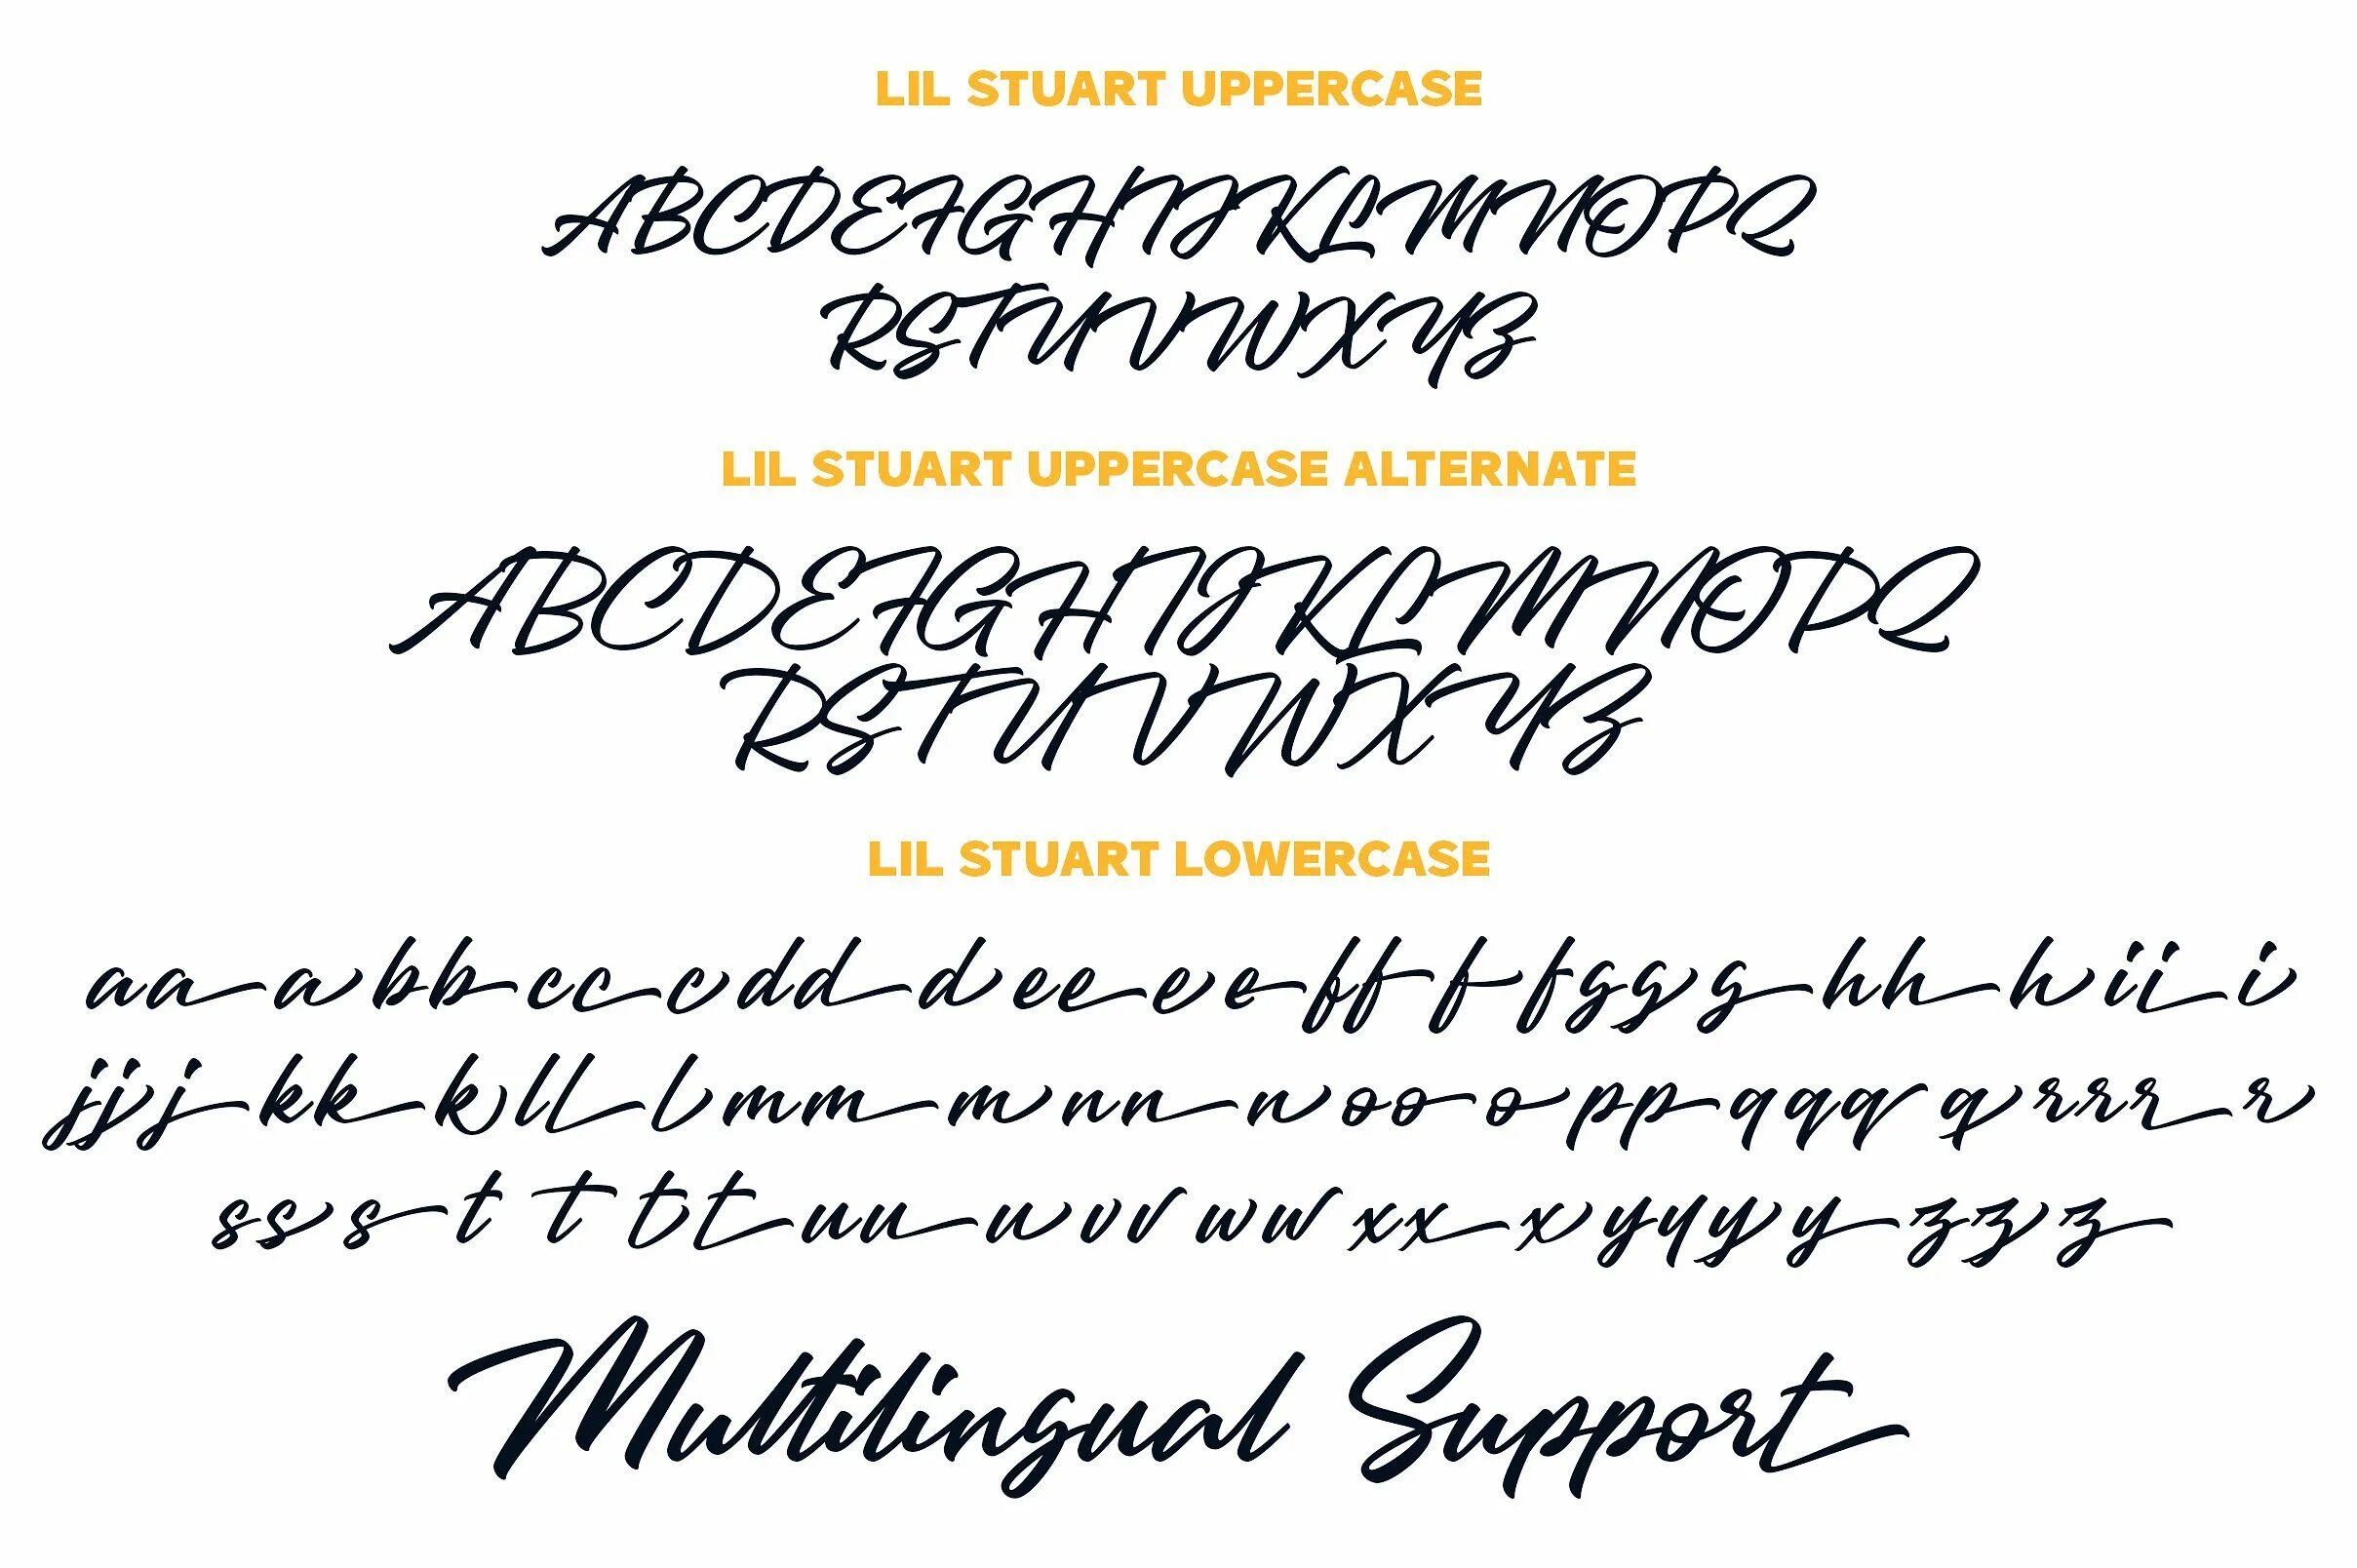 LIL STUART UPPERCASE
ABCDEFGHIJKLMNOPQ
RSTUVWXYZ
LIL STUART UPPERCASE ALTERNATE
ABCDEFGHIJKLMNOPQ
RSTUVWXYZ
LIL STUART LOWERCASE
aaabbcccdddeeeeffffggghhhiii
jjjkkklllmmmnnnoooppqqqqrrrr
sssttttuuuvvwwxxxyyyyzzz
Multilingual Support